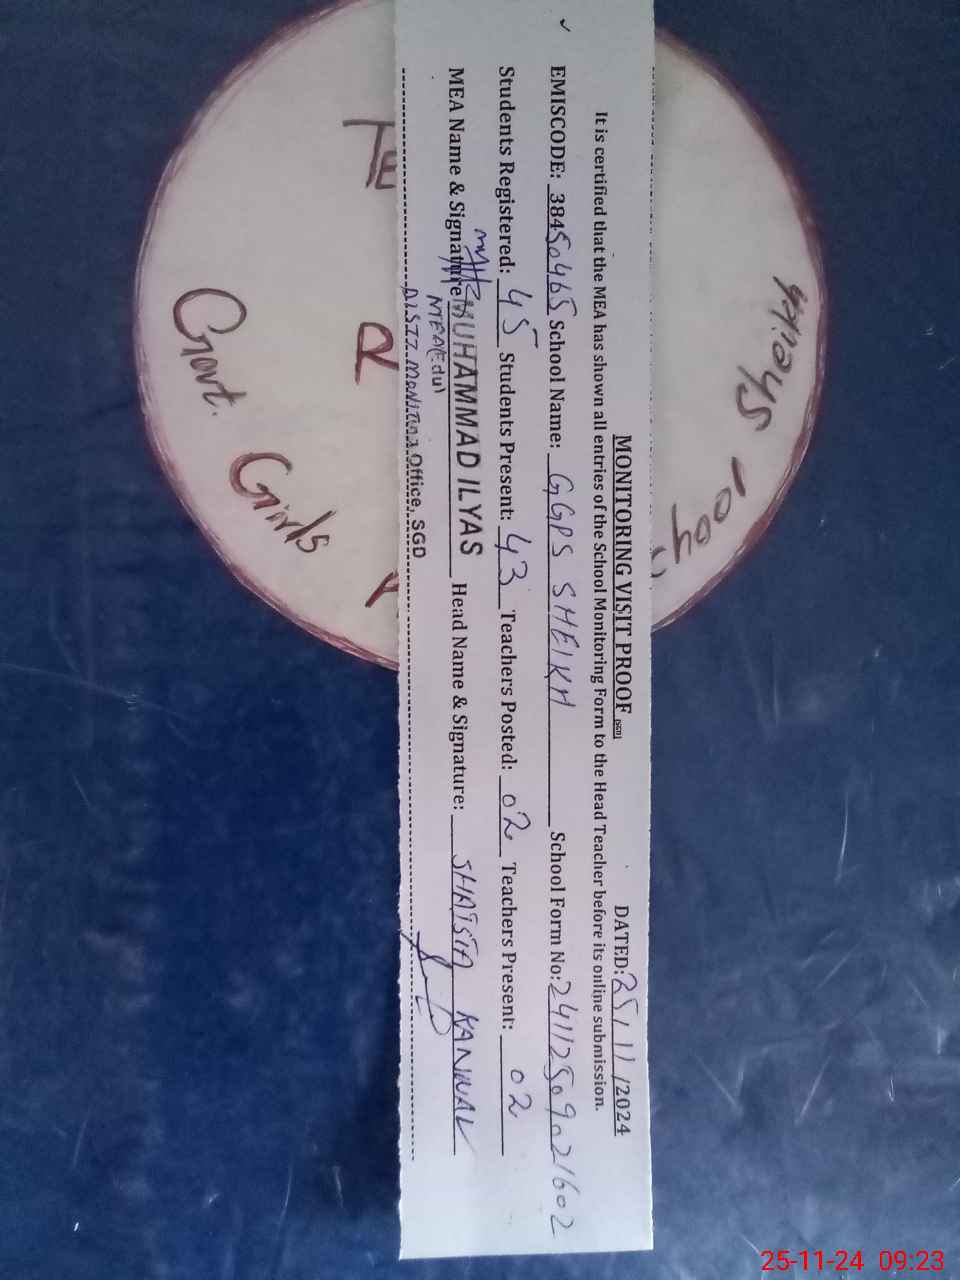 MONITORING VISIT PROOF DATED: 25/11/2024
It is certified that the MEA has shown all entries of the School Monitoring Form to the Head Teacher before its online submission.
EMISCODE: 38450465 School Name: GGPS SHEIKH School Form No: 24112509021602
Students Registered: 45 Students Present: 43 Teachers Posted: 02 Teachers Present: 02
MEA Name & Signature MUHAMMAD ILYAS Head Name & Signature: SHAISTA KANWAL
MEA(Edu)
Distt. Monitoring Office, SGD
Govt. Girls
25-11-24 09:23